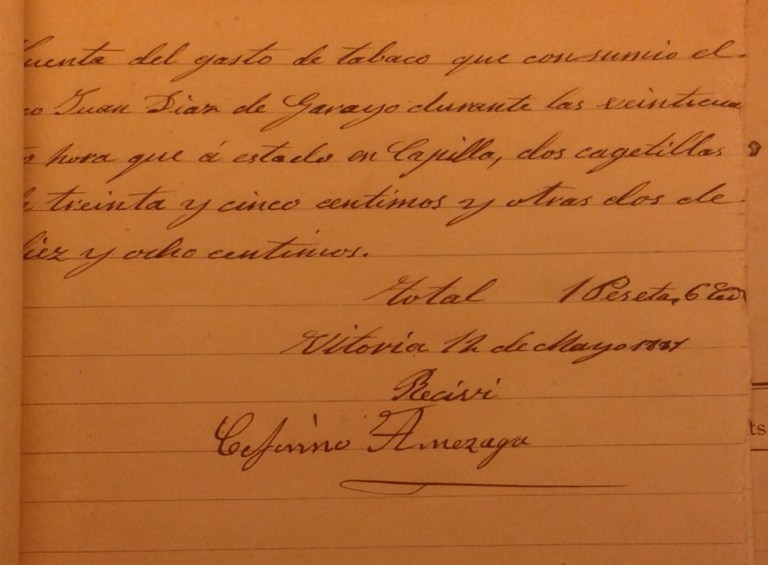 uenta del gasto de tabaco que consumio el
eo Juan Diaz de Garayo durante las veinticua
o hora que á estado en Capilla, dos cagetillas
e treinta y cinco centimos y otras dos de
iez y ocho centimos.
Total 1 Peseta, 6
Vitoria 12 de Mayo 1881
Recivi
Ceferino Amezaga
ts